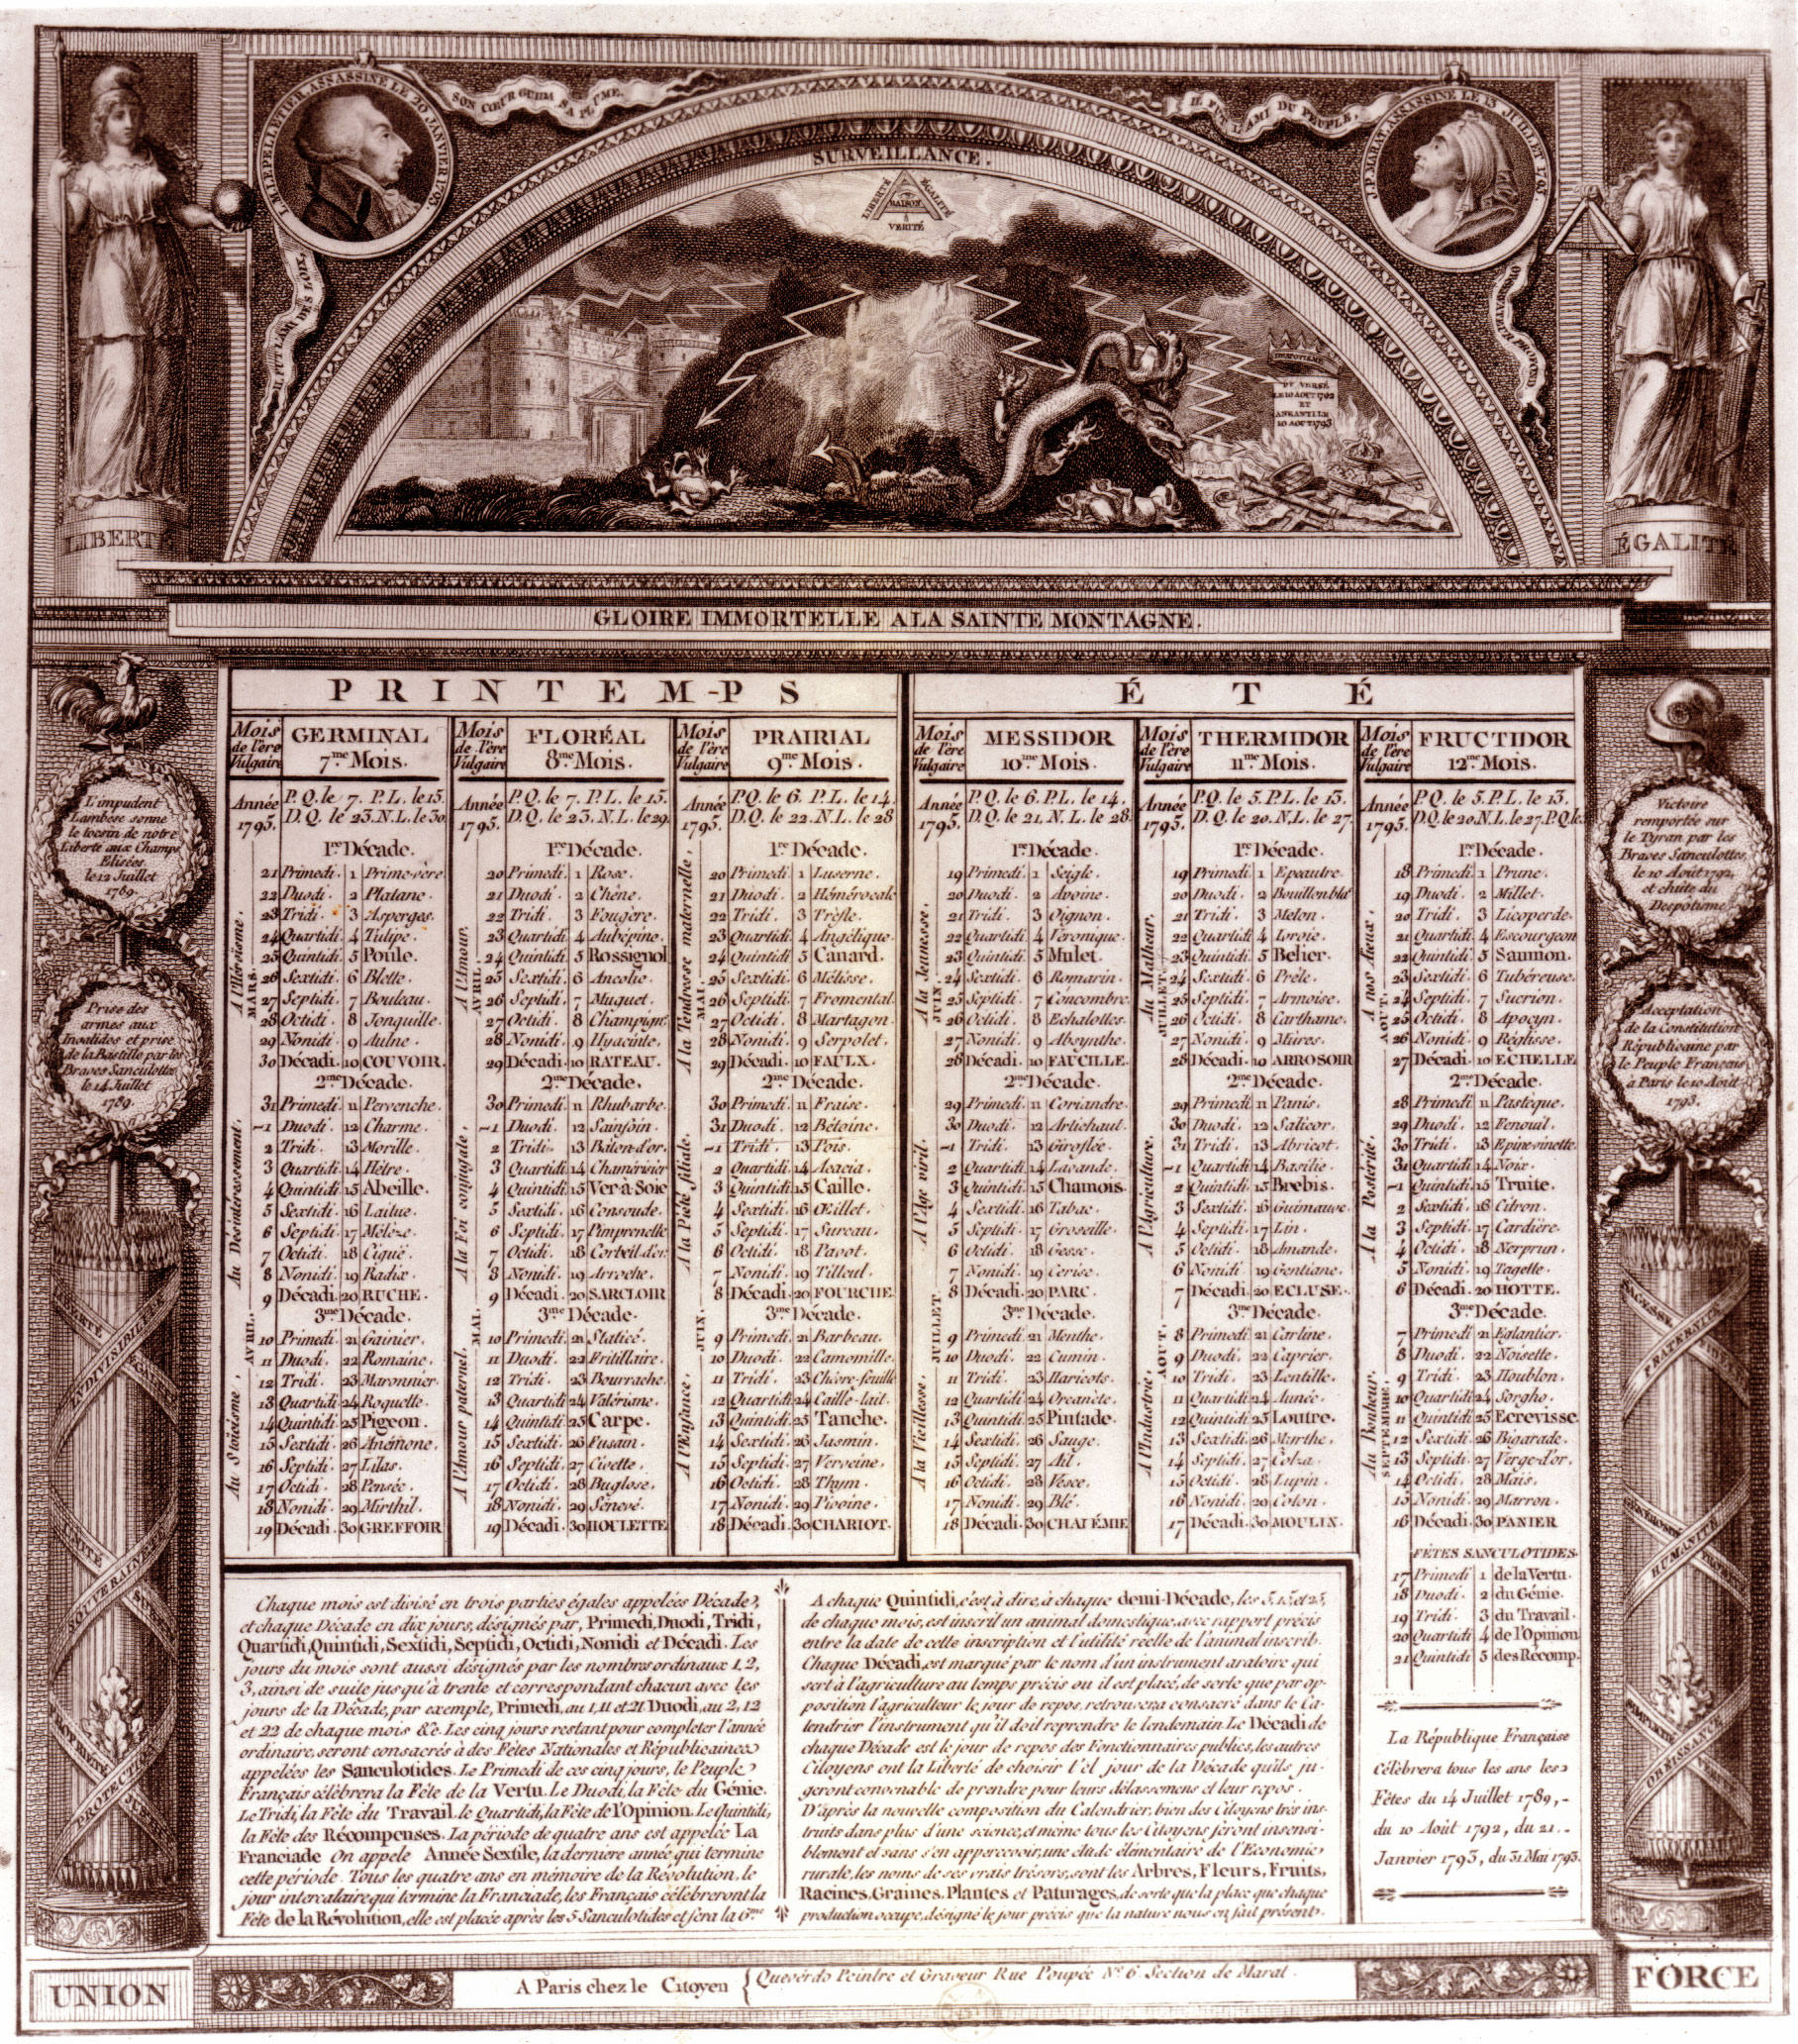 I. M. LEPELLETIER ASSASSINÉ LE 20 JANVIER 1793.
SON CŒUR GUIDA SA PLUME.
IL FUT L'AMI DES LOIX,
IL FUT L'AMI DU PEUPLE,
J.P. MARAT ASSASSINÉ LE 13 JUILLET 1793.
SURVEILLANCE.
LIBERTÉ
ÉGALITÉ
RAISON
VERITÉ
DESPOTISME
LE 10 AOUT 1792
ET
ANEANTI LE
10 AOUT 1793
LIBERTÉ
ÉGALITÉ
GLOIRE IMMORTELLE A LA SAINTE MONTAGNE.
L'impudent
Lambèse sonne
le tocsin de notre
Liberté aux Champs
Elisées.
le 12 Juillet
1789.
Prise des
armes aux
Invalides et prise
de la Bastille par les
Braves Sanculottes
le 14 Juillet
1789.
PRINTEM-PS
Mois de l'ère Vulgaire
GERMINAL
7me Mois.
Année 1793.
P.Q. le 7. P.L. le 15.
D.Q. le 23. N.L. le 30
A l'Héroïsme.
MARS.
Au Desintéressement.
AVRIL.
Au Stoïcisme.
1re Décade.
21 Primedi. 1 Primevère
22 Duodi. 2 Platane.
23 Tridi. 3 Asperges.
24 Quartidi. 4 Tulipe.
25 Quintidi. 5 Poule.
26 Sextidi. 6 Blette.
27 Septidi. 7 Bouleau.
28 Octidi. 8 Jonquille.
29 Nonidi. 9 Aulne.
30 Décadi. 10 COUVOIR.
2me Décade.
31 Primedi. 11 Pervenche.
1 Duodi. 12 Charme.
2 Tridi. 13 Morille.
3 Quartidi. 14 Hêtre.
4 Quintidi. 15 Abeille.
5 Sextidi. 16 Laitue.
6 Septidi. 17 Mélèze.
7 Octidi. 18 Ciguë.
8 Nonidi. 19 Radix.
9 Décadi. 20 RUCHE.
3me Décade.
10 Primedi. 21 Gainier.
11 Duodi. 22 Romaine.
12 Tridi. 23 Maronnier.
13 Quartidi. 24 Roquette.
14 Quintidi. 25 Pigeon.
15 Sextidi. 26 Anémone.
16 Septidi. 27 Lilas.
17 Octidi. 28 Pensée.
18 Nonidi. 29 Mirthil.
19 Décadi. 30 GREFFOIR
Mois de l'ère Vulgaire
FLORÉAL
8me Mois.
Année 1793.
P.Q. le 7. P.L. le 15.
D.Q. le 23. N.L. le 29.
A l'Amour.
AVRIL.
A la Foi conjugale.
MAI.
A l'Amour paternel.
1re Décade.
20 Primedi. 1 Rose.
21 Duodi. 2 Chêne.
22 Tridi. 3 Fougère.
23 Quartidi. 4 Aubépine.
24 Quintidi. 5 Rossignol
25 Sextidi. 6 Ancolie.
26 Septidi. 7 Muguet.
27 Octidi. 8 Champign.
28 Nonidi. 9 Hyacinte.
29 Décadi. 10 RATEAU.
2me Décade.
30 Primedi. 11 Rhubarbe.
1 Duodi. 12 Sainfoin.
2 Tridi. 13 Bâton-d'or.
3 Quartidi. 14 Chamérisier
4 Quintidi. 15 Ver-à-Soie
5 Sextidi. 16 Consoude.
6 Septidi. 17 Pimprenelle
7 Octidi. 18 Corbeil.d'or.
8 Nonidi. 19 Arroche.
9 Décadi. 20 SARCLOIR
3me Décade.
10 Primedi. 21 Staticé.
11 Duodi. 22 Fritillaire.
12 Tridi. 23 Bourrache.
13 Quartidi. 24 Valériane.
14 Quintidi. 25 Carpe.
15 Sextidi. 26 Fusain.
16 Septidi. 27 Civette.
17 Octidi. 28 Buglose.
18 Nonidi. 29 Sénevé.
19 Décadi. 30 HOULETTE
Mois de l'ère Vulgaire
PRAIRIAL
9me Mois.
Année 1793.
P.Q. le 6. P.L. le 14.
D.Q. le 22. N.L. le 28
A la Tendresse maternelle.
MAI.
A la Piété filiale.
JUIN.
A l'Enfance.
1re Décade.
20 Primedi. 1 Luserne.
21 Duodi. 2 Hémérocale
22 Tridi. 3 Trèfle.
23 Quartidi. 4 Angélique.
24 Quintidi. 5 Canard.
25 Sextidi. 6 Mélisse.
26 Septidi. 7 Fromental.
27 Octidi. 8 Martagon.
28 Nonidi. 9 Serpolet.
29 Décadi. 10 FAULX.
2me Décade.
30 Primedi. 11 Fraise.
31 Duodi. 12 Bétoine.
1 Tridi. 13 Pois.
2 Quartidi. 14 Acacia.
3 Quintidi. 15 Caille.
4 Sextidi. 16 Œillet.
5 Septidi. 17 Sureau.
6 Octidi. 18 Pavot.
7 Nonidi. 19 Tilleul.
8 Décadi. 20 FOURCHE.
3me Décade.
9 Primedi. 21 Barbeau.
10 Duodi. 22 Camomille.
11 Tridi. 23 Chèvre-feuille
12 Quartidi. 24 Caille-lait.
13 Quintidi. 25 Tanche.
14 Sextidi. 26 Jasmin.
15 Septidi. 27 Verveine.
16 Octidi. 28 Thym.
17 Nonidi. 29 Pivoine.
18 Décadi. 30 CHARIOT.
ÉTÉ
Mois de l'ère Vulgaire
MESSIDOR
10me Mois.
Année 1793.
P.Q. le 6. P.L. le 14.
D.Q. le 21 N.L. le 28.
A la Jeunesse.
JUIN.
A l'Age viril.
JUILLET.
A la Vieillesse.
1re Décade.
19 Primedi. 1 Seigle.
20 Duodi. 2 Avoine.
21 Tridi. 3 Oignon.
22 Quartidi. 4 Véronique.
23 Quintidi. 5 Mulet.
24 Sextidi. 6 Romarin.
25 Septidi. 7 Concombre.
26 Octidi. 8 Echalottes.
27 Nonidi. 9 Absynthe.
28 Décadi. 10 FAUCILLE.
2me Décade.
29 Primedi. 11 Coriandre.
30 Duodi. 12 Artichaut.
1 Tridi. 13 Giroflée.
2 Quartidi. 14 Lavande.
3 Quintidi. 15 Chamois.
4 Sextidi. 16 Tabac.
5 Septidi. 17 Groseille.
6 Octidi. 18 Gesse.
7 Nonidi. 19 Cerise.
8 Décadi. 20 PARC.
3me Décade.
9 Primedi. 21 Menthe.
10 Duodi. 22 Cumin.
11 Tridi. 23 Haricots.
12 Quartidi. 24 Orcanète.
13 Quintidi. 25 Pintade.
14 Sextidi. 26 Sauge.
15 Septidi. 27 Ail.
16 Octidi. 28 Vesce.
17 Nonidi. 29 Blé.
18 Décadi. 30 CHALÉMIE
Mois de l'ère Vulgaire
THERMIDOR
11me Mois.
Année 1793.
P.Q. le 5. P.L. le 13.
D.Q. le 20. N.L. le 27.
Au Malheur.
JUILLET.
A l'Agriculture.
AOUT.
A l'Industrie.
1re Décade.
19 Primedi. 1 Epeautre.
20 Duodi. 2 Bouillonblá
21 Tridi. 3 Melon.
22 Quartidi. 4 Ivroie.
23 Quintidi. 5 Belier.
24 Sextidi. 6 Prêle.
25 Septidi. 7 Armoise.
26 Octidi. 8 Carthame.
27 Nonidi. 9 Mûres.
28 Décadi. 10 ARROSOIR
2me Décade.
29 Primedi. 11 Panis.
30 Duodi. 12 Salicor.
31 Tridi. 13 Abricot.
1 Quartidi. 14 Basilic.
2 Quintidi. 15 Brebis.
3 Sextidi. 16 Guimauve.
4 Septidi. 17 Lin.
5 Octidi. 18 Amande.
6 Nonidi. 19 Gentiane.
7 Décadi. 20 ECLUSE.
3me Décade.
8 Primedi. 21 Carline.
9 Duodi. 22 Caprier.
10 Tridi. 23 Lentille.
11 Quartidi. 24 Aunée.
12 Quintidi. 25 Loutre.
13 Sextidi. 26 Myrthe.
14 Septidi. 27 Colza.
15 Octidi. 28 Lupin.
16 Nonidi. 29 Coton.
17 Décadi. 30 MOULIN.
Mois de l'ère Vulgaire
FRUCTIDOR
12me Mois.
Année 1793.
P.Q. le 5. P.L. le 13.
D.Q. le 20. N.L. le 27. P.Q. le
A nos Aïeux.
AOUT.
A la Postérité.
Au Bonheur.
SEPTEMBRE.
1re Décade.
18 Primedi. 1 Prune.
19 Duodi. 2 Millet.
20 Tridi. 3 Licoperde.
21 Quartidi. 4 Escourgeon
22 Quintidi. 5 Saumon.
23 Sextidi. 6 Tubéreuse.
24 Septidi. 7 Sucrion.
25 Octidi. 8 Apocyn.
26 Nonidi. 9 Réglisse.
27 Décadi. 10 ECHELLE
2me Décade.
28 Primedi. 11 Pastèque.
29 Duodi. 12 Fenouil.
30 Tridi. 13 Epine-vinette.
31 Quartidi. 14 Noix.
1 Quintidi. 15 Truite.
2 Sextidi. 16 Citron.
3 Septidi. 17 Cardière.
4 Octidi. 18 Nerprun.
5 Nonidi. 19 Tagette.
6 Décadi. 20 HOTTE.
3me Décade.
7 Primedi. 21 Eglantier.
8 Duodi. 22 Noisette.
9 Tridi. 23 Houblon.
10 Quartidi. 24 Sorgho.
11 Quintidi. 25 Ecrevisse.
12 Sextidi. 26 Bigarade.
13 Septidi. 27 Verge-d'or.
14 Octidi. 28 Maïs.
15 Nonidi. 29 Marron.
16 Décadi. 30 PANIER
FÊTES SANCULOTIDES.
17 Primedi 1 de la Vertu.
18 Duodi. 2 du Génie.
19 Tridi. 3 du Travail.
20 Quartidi 4 de l'Opinion
21 Quintidi 5 des Récomp.
La République Française
Célèbrera tous les ans les
Fêtes du 14 Juillet 1789,
du 10 Août 1792, du 21
Janvier 1793, du 31 Mai 1793.
Victoire
remportée sur
le Tyran par les
Braves Sanculottes,
le 10 Août 1792,
et chûte du
Despôtisme.
Acceptation
de la Constitution
Républicaine par
le Peuple Français
à Paris le 10 Août
1793.
LIBERTÉ
INDIVISIBILITÉ
ÉGALITÉ
UNITÉ
SOUVERAINETÉ
SURETÉ
PROPRIÉTÉ
PROTECTION
JUSTICE
SAGESSE
FRATERNITÉ
GÉNÉROSITÉ
HUMANITÉ
OBÉISSANCE
Chaque mois est divisé en trois parties égales appelées Décade,
et chaque Décade en dix jours, désignés par, Primedi, Duodi, Tridi,
Quartidi, Quintidi, Sextidi, Septidi, Octidi, Nonidi et Décadi. Les
jours du mois sont aussi désignés par les nombres ordinaux 1, 2,
3, ainsi de suite jusqu'à trente et correspondant chacun avec les
jours de la Décade, par exemple, Primedi, au 1, 11 et 21 Duodi, au 2, 12
et 22 de chaque mois &c. Les cinq jours restant pour completer l'année
ordinaire, seront consacrés à des Fêtes Nationales et Républicaines
appelées les Sanculotides. Le Primedi de ces cinq jours, le Peuple
Français célèbrera la Fête de la Vertu. Le Duodi, la Fête du Génie.
Le Tridi, la Fête du Travail. le Quartidi, la Fête de l'Opinion. Le Quintidi,
la Fête des Récompenses. La période de quatre ans est appelée La
Franciade On appele Année Sextile, la dernière année qui termine
cette période. Tous les quatre ans en mémoire de la Révolution, le
jour intercalaire qui termine la Franciade, les Français célèbreront la
Fête de la Révolution, elle est placée après les 5 Sanculotides et sera la 6me
A chaque Quintidi, c'est à dire, à chaque demi-Décade, les 5. 15 et 25,
de chaque mois, est inscrit un animal domestique, avec rapport précis
entre la date de cette inscription et l'utilité réelle de l'animal inscrit.
Chaque Décadi, est marqué par le nom d'un instrument aratoire qui
sert à l'agriculture au temps précis ou il est placé, de sorte que par op-
position l'agriculteur le jour de repos, retrouvera consacré dans le Ca-
lendrier l'instrument qu'il doit reprendre le lendemain. Le Décadi de
chaque Décade est le jour de repos des Fonctionnaires publics, les autres
Citoyens ont la Liberté de choisir tel jour de la Décade qu'ils ju-
geront convenable de prendre pour leurs délassemens et leur repos.
D'après la nouvelle composition du Calendrier, bien des Citoyens très ins-
truits dans plus d'une science, et même tous les Citoyens seront insensi-
blement et sans s'en appercevoir, une étude élémentaire de l'Economie
rurale, les noms de ses vrais trésors, sont les Arbres, Fleurs, Fruits,
Racines, Graines, Plantes et Paturages, de sorte que la place que chaque
production occupe, désigne le jour précis que la nature nous en fait présent.
UNION
A Paris chez le Citoyen { Quevérdo Peintre et Graveur Rue Poupée No. 6 Section de Marat.
FORCE